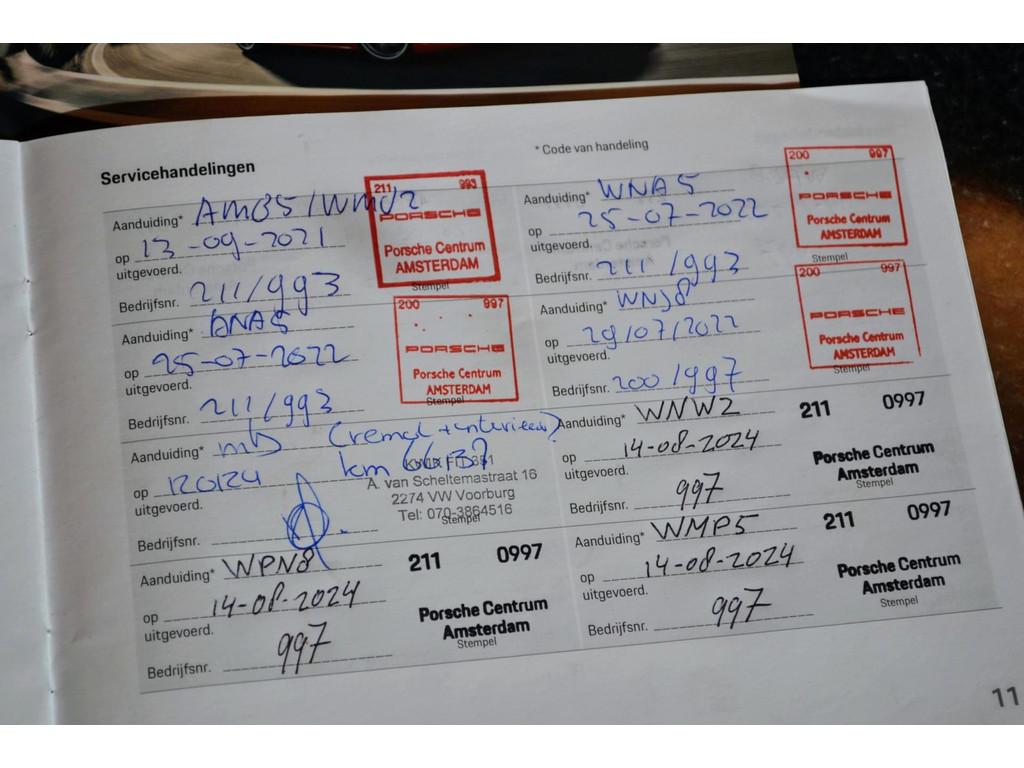 Servicehandelingen
* Code van handeling
Aanduiding* AMB5/WMU2
op 13-09-2021
uitgevoerd.
Bedrijfsnr. 211/993
211 993
PORSCHE
Porsche Centrum
AMSTERDAM
Stempel
Aanduiding* WNA5
op 25-07-2022
uitgevoerd.
Bedrijfsnr. 211/993
200 997
PORSCHE
Porsche Centrum
AMSTERDAM
Stempel
Aanduiding*
op 25-07-2022
uitgevoerd.
Bedrijfsnr. 211/993
200 997
PORSCHE
Porsche Centrum
AMSTERDAM
Stempel
Aanduiding* WNJ8
op 29/07/2022
uitgevoerd.
Bedrijfsnr. 200/997
200 997
PORSCHE
Porsche Centrum
AMSTERDAM
Stempel
Aanduiding*
op
uitgevoerd.
Bedrijfsnr.
km
A. van Scheltemastraat 16
2274 VW Voorburg
Tel: 070-3864516
Stempel
Aanduiding* WNW2
op 14-08-2024
uitgevoerd.
Bedrijfsnr. 997
211 0997
Porsche Centrum
Amsterdam
Stempel
Aanduiding* WPN8
op 14-08-2024
uitgevoerd.
Bedrijfsnr. 997
211 0997
Porsche Centrum
Amsterdam
Stempel
Aanduiding* WMP5
op 14-08-2024
uitgevoerd.
Bedrijfsnr. 997
211 0997
Porsche Centrum
Amsterdam
Stempel
11